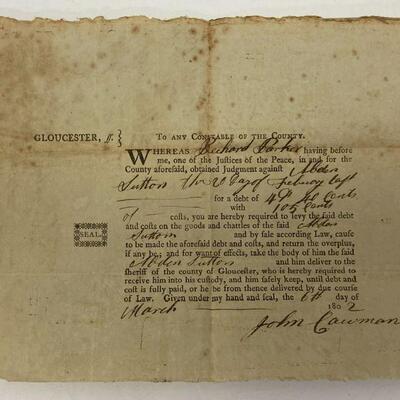 GLOUCESTER, ss. }
To any Constable of the County.
WHEREAS Richard Parker having before
me, one of the Justices of the Peace, in and for the
County aforesaid, obtained Judgment against Abden
Sutton the Day of Febuory last
for a debt of Cents
with Cents
of costs, you are hereby required to levy the said debt
and costs on the goods and chattles of the said Abden
Sutton and by sale according Law, cause
to be made the aforesaid debt and costs, and return the overplus,
if any be; and for want of effects, take the body of him the said
Abden Sutton and him deliver to the
sheriff of the county of Gloucester, who is hereby required to
receive him into his custody, and him safely keep, until debt and
cost is fully paid, or he be from thence delivered by due course
of Law. Given under my hand and seal, the 6th day of
March 1802
SEAL.
John Cawman